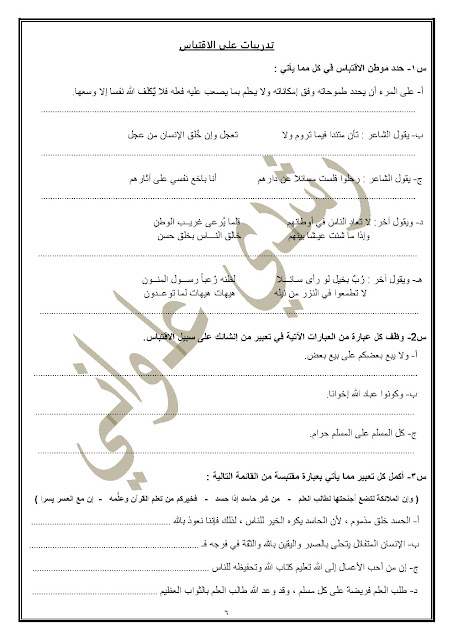 تدريبات على الاقتباس
س١- حدد موطن الاقتباس في كل مما يأتي :
أ- على المرء أن يحدد طموحاته وفق إمكاناته ولا يحلم بما يصعب عليه فعله فلا يُكلف الله نفسا إلا وسعها.
ب- يقول الشاعر : تأن متئدا فيما تروم ولا تعجل وإن خُلق الإنسان من عجل
ج- يقول الشاعر : رحلوا فلست مسائلا عن دارهم أنا باخع نفسي على آثارهم
د- ويقول آخر: لا تعاد الناس في أوطانهم قلما يُرعى غريب الوطن
وإذا ما شئت عيشا بينهم خالق الناس بخلق حسن
هـ- ويقول آخر : رُبَّ بخيل لو رأى سائلا لظنه رُعباً رسول المنون
لا تطمعوا في النزر من نيله هيهات هيهات لما توعدون
س2- وظف كل عبارة من العبارات الآتية في تعبير من إنشائك على سبيل الاقتباس.
أ- ولا يبع بعضكم على بيع بعض.
ب- وكونوا عباد الله إخوانا.
ج- كل المسلم على المسلم حرام.
س٣- أكمل كل تعبير مما يأتي بعبارة مقتبسة من القائمة التالية :
( وإن الملائكة لتضع أجنحتها لطالب العلم - من شر حاسد إذا حسد - فخيركم من تعلم القرآن وعلَّمه - إن مع العسر يسرا )
أ- الحسد خلق مذموم ، لأن الحاسد يكره الخير للناس ، لذلك فإننا نعوذ بالله
ب- الإنسان المتفائل يتحلى بالصبر واليقين بالله والثقة في فرجه فـ
ج- إن من أحب الأعمال إلى الله تعليم كتاب الله وتحفيظه للناس
د- طلب العلم فريضة على كل مسلم ، وقد وعد الله طالب العلم بالثواب العظيم
٦
رشدي علواني